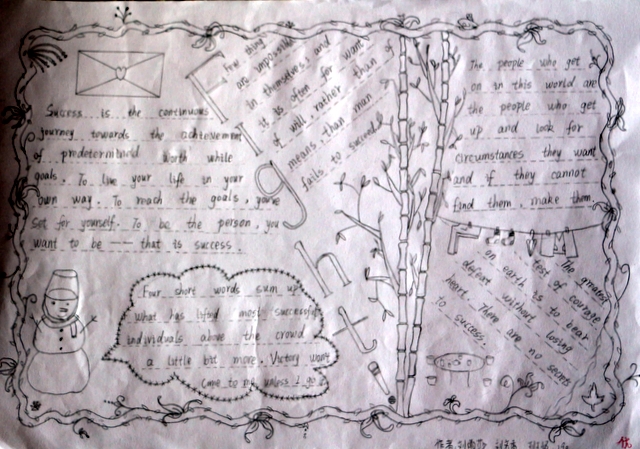 Success is the continuous
journey towards the achievement
of predetermined worth while
goals. To live your life in your
own way. To reach the goals, you've
set for yourself. To be the person, you
want to be —— that is success.
Fight!
Few things
are impossible
in themselves; and
it is often for want
of will, rather than of
means that man
fails to succeed
The people who get
on in this world are
the people who get
up and look for
circumstances they want
and if they cannot
find them, make them.
Four short words sum up
what has lifted most successful
individuals above the crowd
a little bit more. Victory won't
come to me unless I go
The greatest
test of courage
on earth is to bear
defeat without losing
heart. There are no secrets
to success.
作者
优